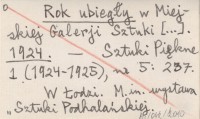 Rok ubiegły w Miej-
skiej Galerji Sztuki [...].
1924. — Sztuki Piękne
1 (1924-1925), nr 5: 237.
W Łodzi. M. in. wystawa
„Sztuki Podhalańskiej.